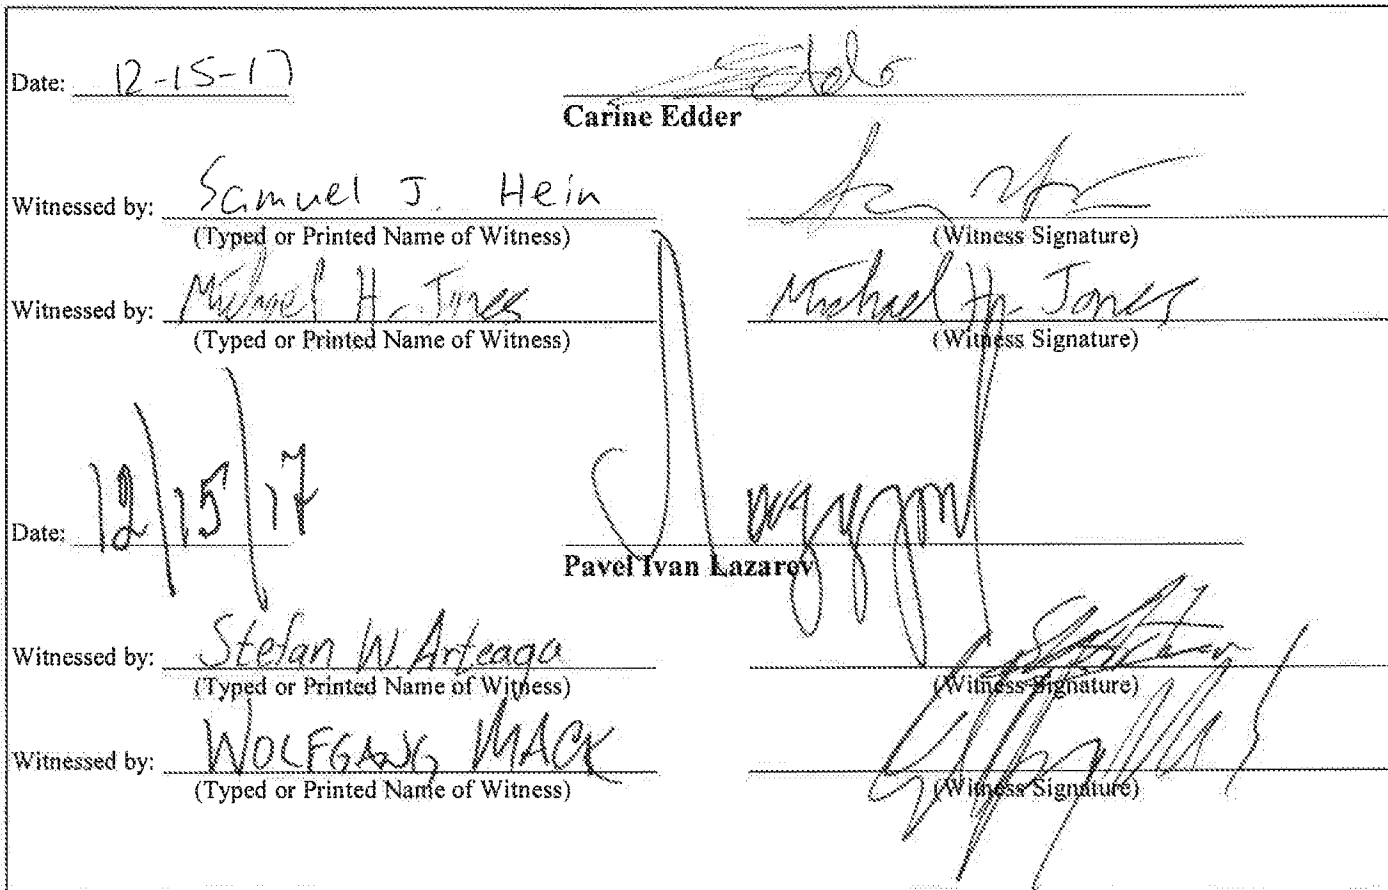 Date: 12-15-17
Carine Edder
Witnessed by: Samuel J. Hein
(Typed or Printed Name of Witness) (Witness Signature)
Witnessed by: Michael H. Jones Michael H. Jones
(Typed or Printed Name of Witness) (Witness Signature)
Date: 12/15/17
Pavel Ivan Lazarov
Witnessed by: Stefan W. Arteaga
(Typed or Printed Name of Witness) (Witness Signature)
Witnessed by: WOLFGANG MACK
(Typed or Printed Name of Witness) (Witness Signature)